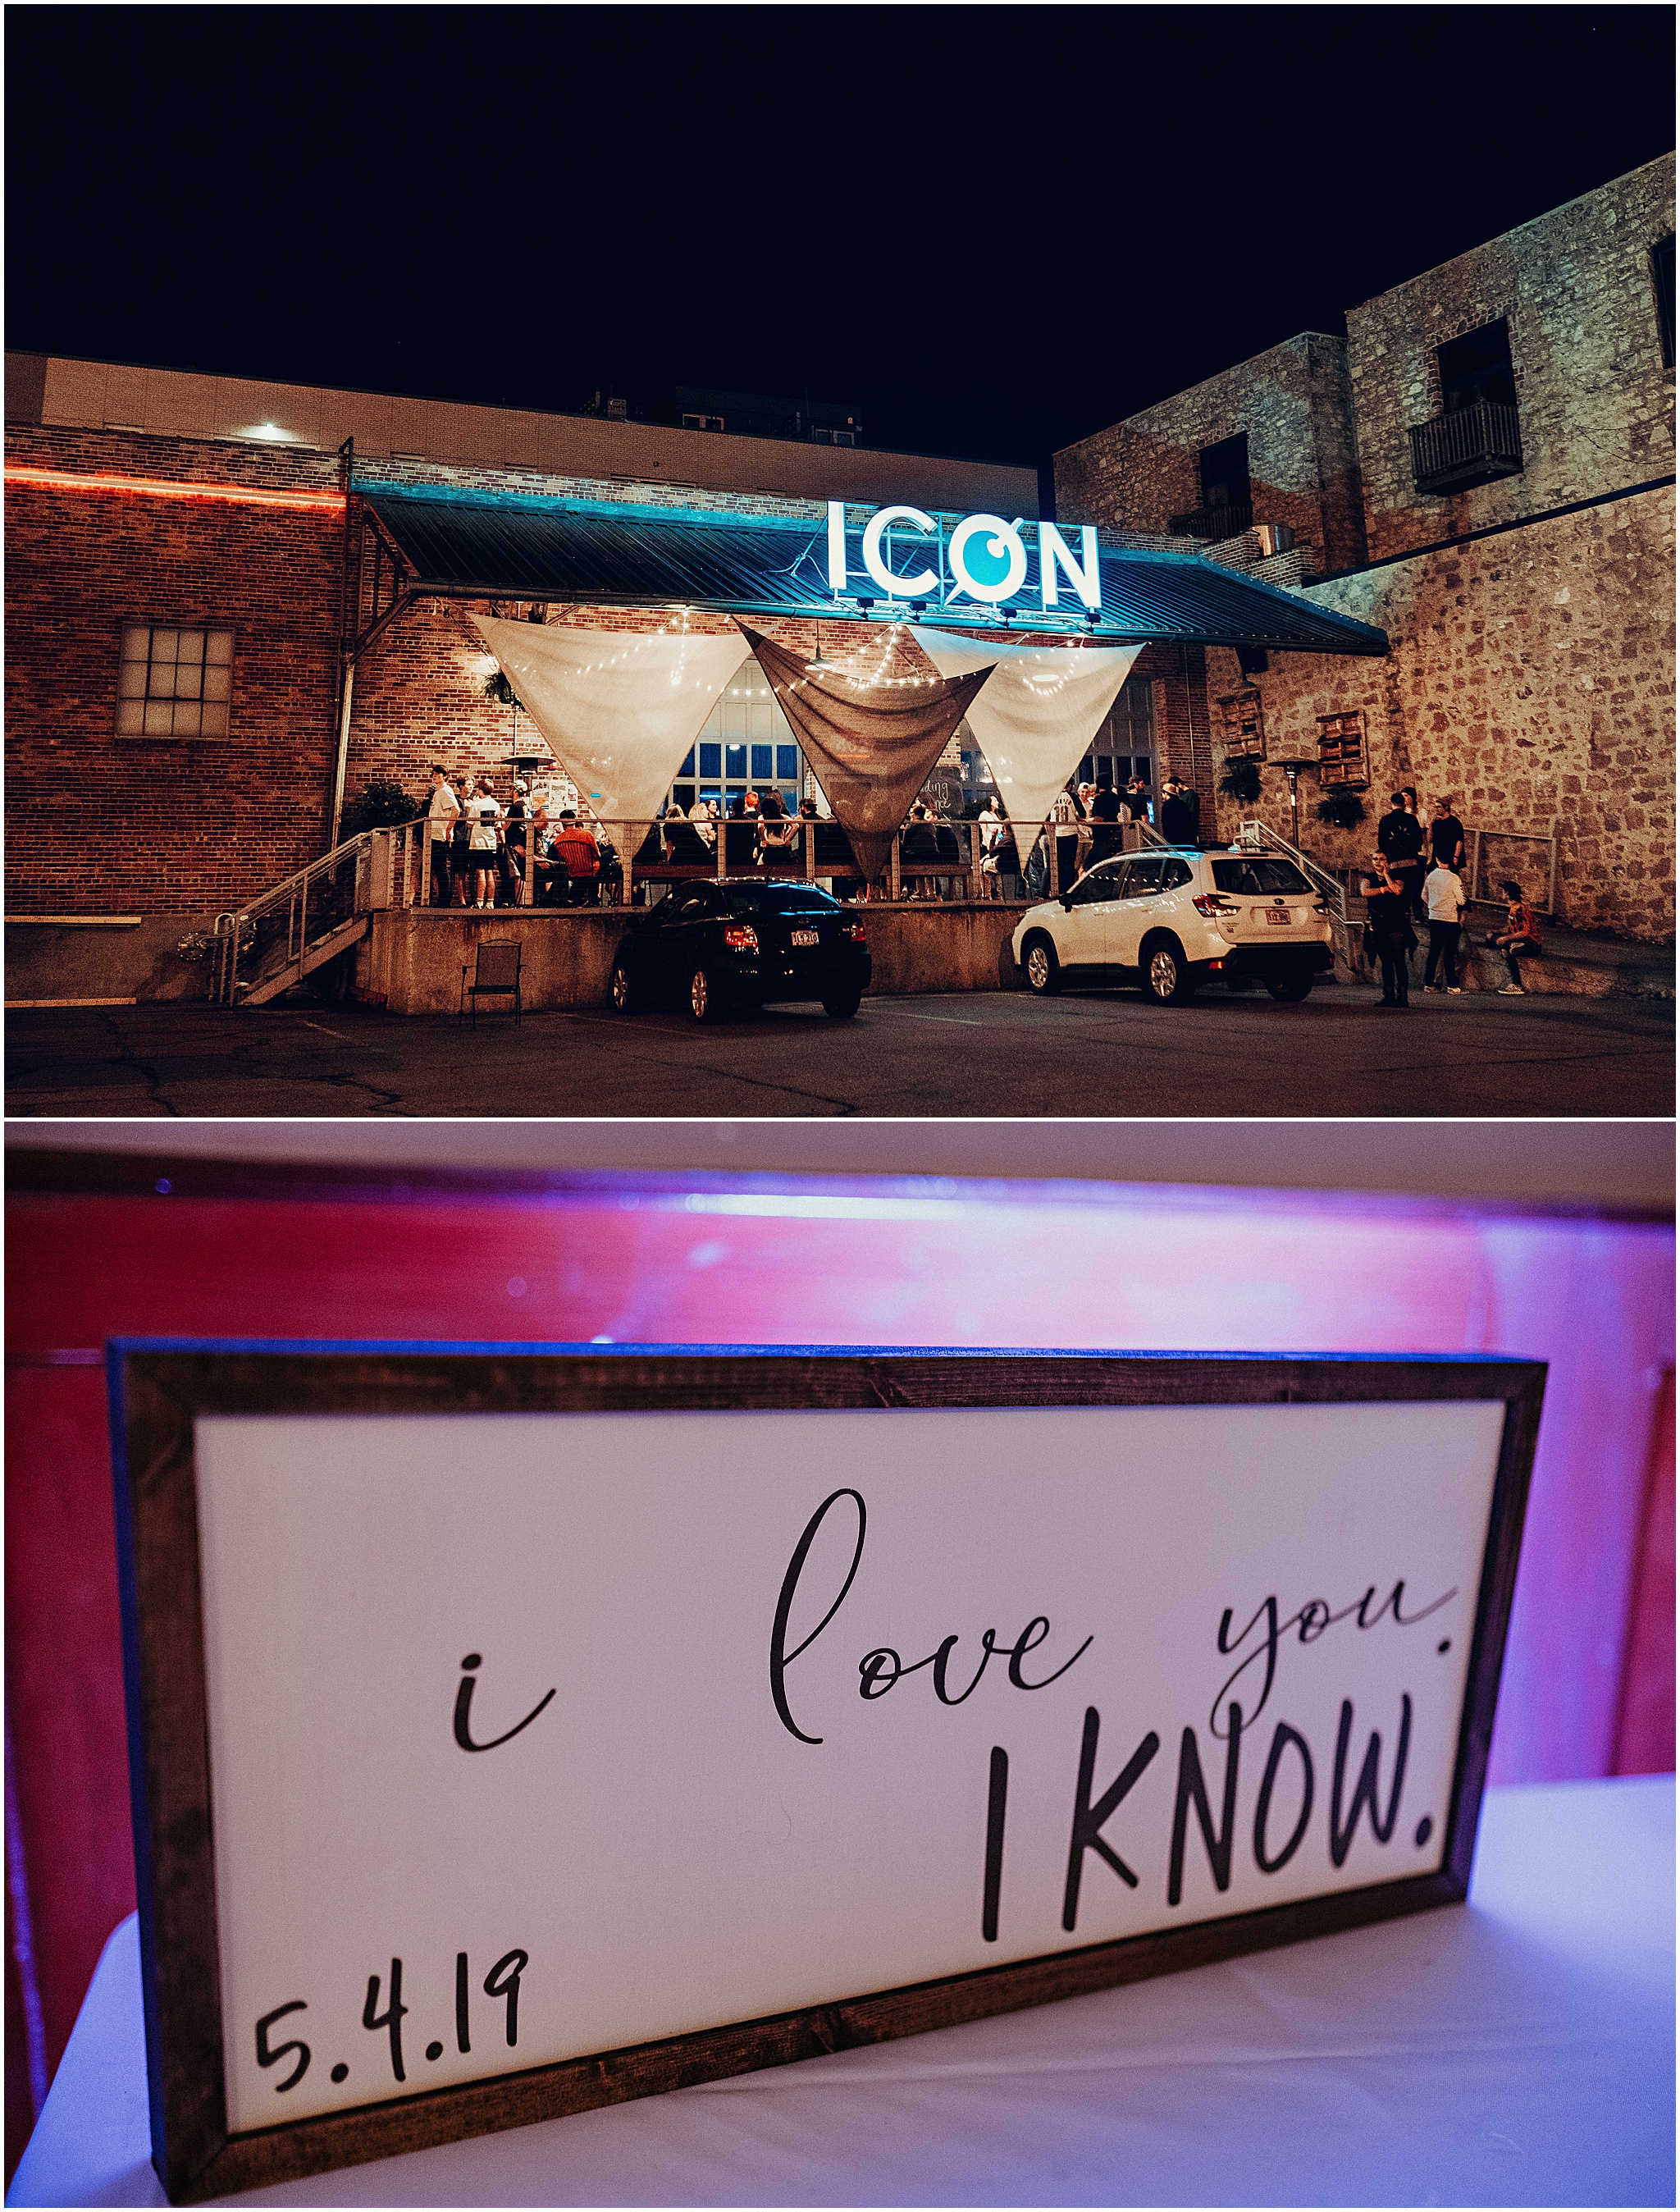 ICON
i love you.
I KNOW.
5.4.19